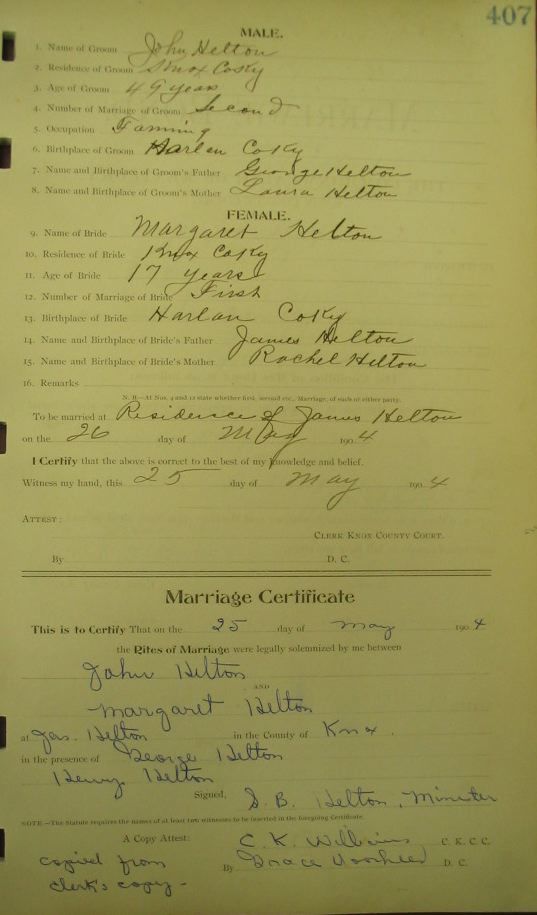 407
MALE.
1. Name of Groom John Helton
2. Residence of Groom Knox Co Ky
3. Age of Groom 49 years
4. Number of Marriage of Groom Second
5. Occupation Farming
6. Birthplace of Groom Harlan Co Ky
7. Name and Birthplace of Groom's Father George Helton
8. Name and Birthplace of Groom's Mother Laura Helton
FEMALE.
9. Name of Bride Margaret Helton
10. Residence of Bride Knox Co Ky
11. Age of Bride 17 years
12. Number of Marriage of Bride First
13. Birthplace of Bride Harlan Co Ky
14. Name and Birthplace of Bride's Father James Helton
15. Name and Birthplace of Bride's Mother Rachel Helton
16. Remarks
N. B.—At Nos. 4 and 12 state whether first, second etc., Marriage, of each or either party.
To be married at Residence of James Helton
on the 26 day of May 1904
I Certify that the above is correct to the best of my knowledge and belief.
Witness my hand, this 25 day of May 1904
ATTEST:
CLERK KNOX COUNTY COURT.
By D. C.
Marriage Certificate
This is to Certify That on the 25 day of May 1904
the Rites of Marriage were legally solemnized by me between
John Helton
AND
Margaret Helton
at Jas. Helton in the County of Knox.
in the presence of George Helton
Henry Helton
Signed, S. B. Helton, Minister
NOTE—The Statute requires the names of at least two witnesses to be inserted in the foregoing Certificate.
A Copy Attest: C. K. C. C.
copied from By Grace Voorhees D. C.
clerk's copy -